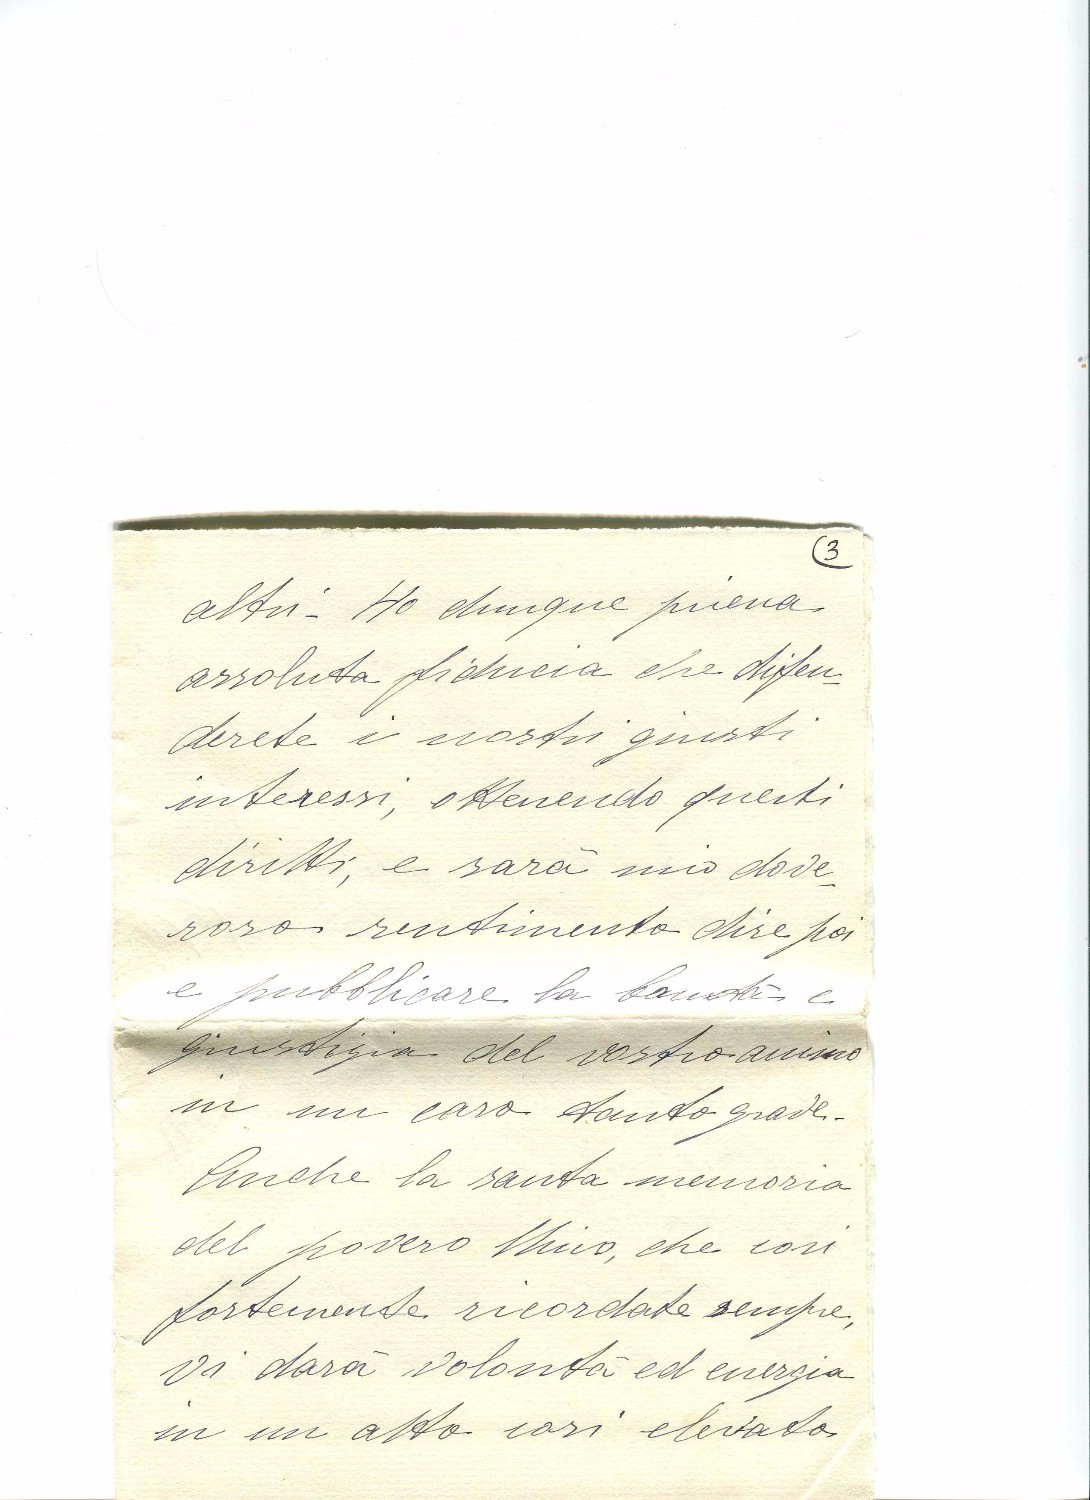 3
altri - Ho dunque piena
assoluta fiducia che difen-
derete i nostri giusti
interessi, ottenendo questi
diritti, e sarà mio dove-
roso sentimento dire poi
e pubblicare la bontà e
giustizia del vostro animo
in un caso tanto grave -
Anche la santa memoria
del povero Mino, che così
fortemente ricordate sempre,
vi darà volontà ed energia
in un atto così elevato